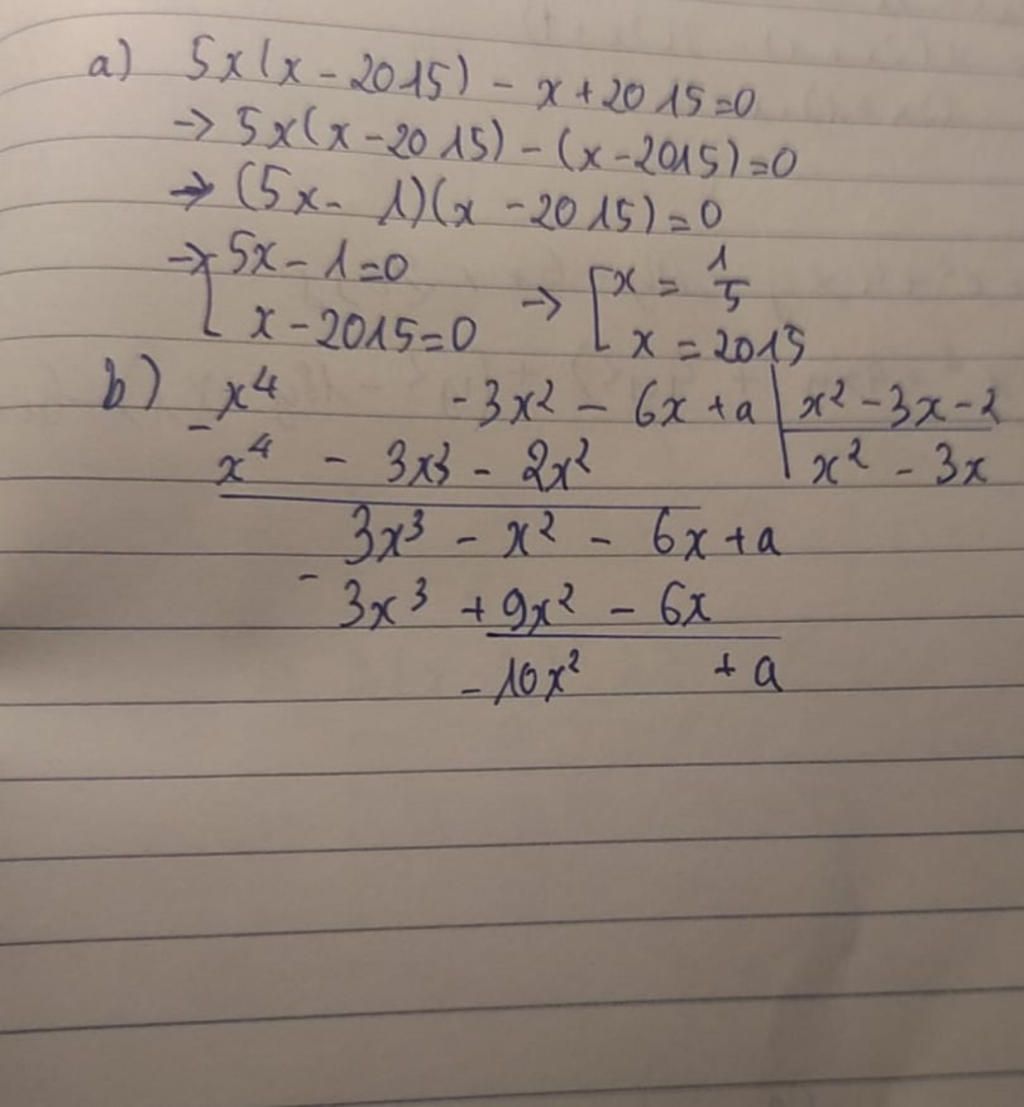 a) 5x(x - 2015) - x + 2015 = 0
→ 5x(x - 2015) - (x - 2015) = 0
→ (5x - 1)(x - 2015) = 0
→ [ 5x - 1 = 0 → [ x = 1/5
x - 2015 = 0 x = 2015
b) - x⁴ - 3x² - 6x + a | x² - 3x - 2
x⁴ - 3x³ - 2x² | x² - 3x
3x³ - x² - 6x + a
- 3x³ + 9x² - 6x
- 10x² + a